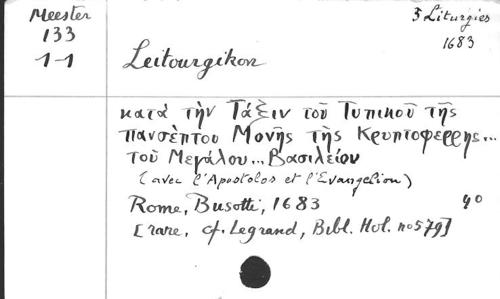 Meester
133
1-1
3 Liturgies
1683
Leitourgikon
κατά τὴν Τάξιν τοῦ Τυπικοῦ τῆς
πανσέπτου Μονῆς τῆς Κρυπτοφερρης...
τοῦ Μεγάλου... Βασιλείου
(avec l'Apostolos et l'Evangelion)
Rome, Busotti, 1683 4o
[rare, cf. Legrand, Bibl. Hel. no 579]